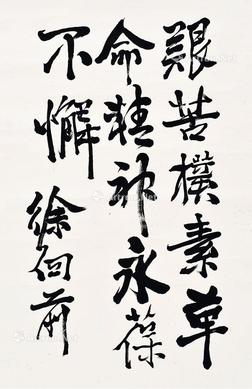 艱苦樸素革
命精神永葆
不懈 徐向前